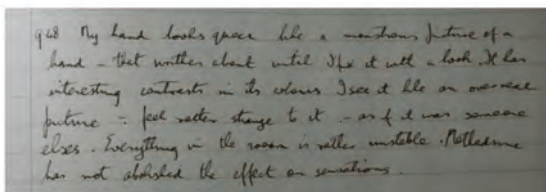 9.48 My hand looks queer like a monstrous picture of a
hand – that writhes about until I fix it with a look. It has
interesting contrasts in its colours I see it like an over real
picture – feel rather strange to it – as if it was someone
elses. Everything in the room is rather unstable. Methedrine
has not abolished the effect on sensations.